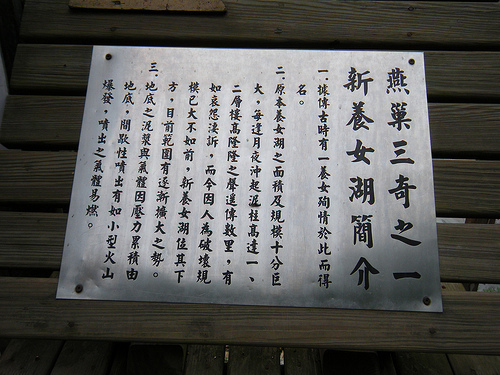 燕巢三奇之一
新養女湖簡介
一. 據傳古時有一養女殉情於此而得
名。
二. 原本養女湖之面積及規模十分巨
大,每逢月夜沖起泥柱高達一、
二層樓高隆隆之聲遠傳數里,有
如哀怨淒訴,而今因人為破壞規
模已大不如前,新養女湖位其下
方,目前範圍有逐漸擴大之勢。
三. 地底之泥漿與氣體因壓力累積由
地底,間歇性噴出有如小型火山
爆發,噴出之氣體易燃。